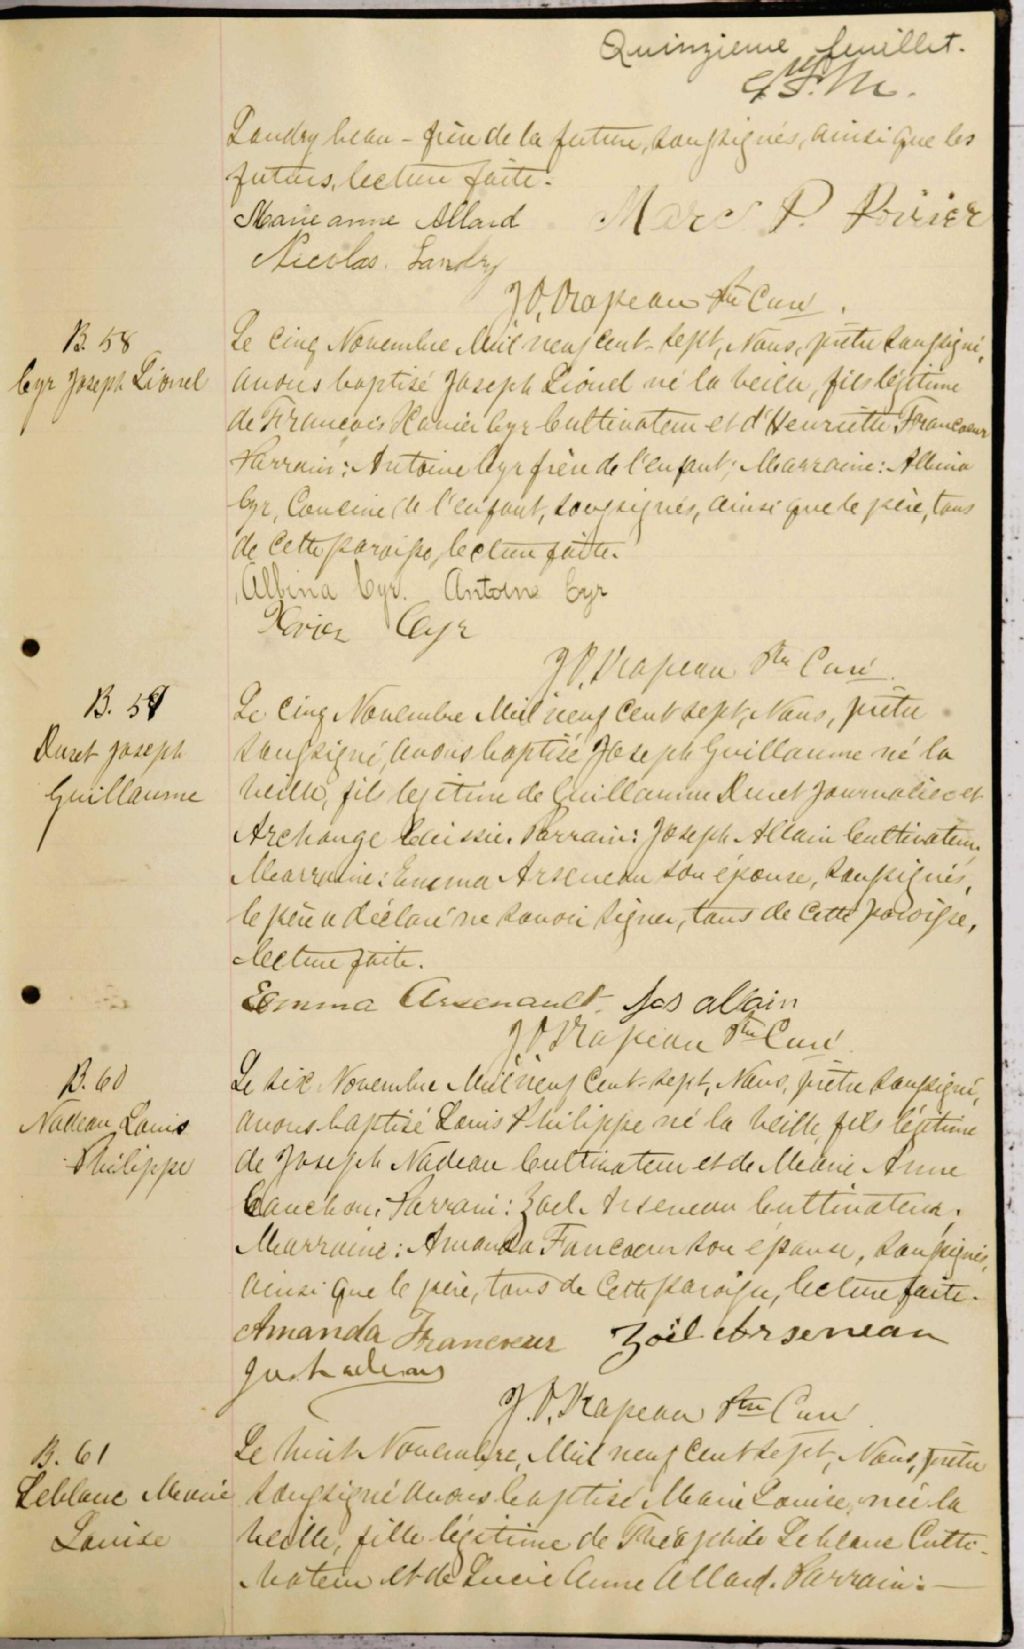 Quinzieme feuillet.
Landry beau-frère de la future, soussignés, ainsi que les
futurs, lecture faite.
Marie anne Allard Marc P. Poirier
Nicolas Landry
J. D. Drapeau Ptre Curé.
B. 58
Cyr Joseph Lionel
Le cinq Novembre Mil neuf cent-sept, Nous, prêtre soussigné,
avons baptisé Joseph Lionel né la veille, fils légitime
de François Xavier Cyr Cultivateur et d'Henriette Francoeur
Parrain: Antoine Cyr frère de l'enfant; Marraine: Albina
Cyr, Cousine de l'enfant, soussignés, ainsi que le père, tous
de cette paroisse, lecture faite.
Albina Cyr. Antoine Cyr
Xavier Cyr
J. D. Drapeau Ptre Curé.
B. 59
Duret Joseph
Guillaume
Le cinq Novembre Mil neuf cent sept, Nous, prêtre
soussigné, avons baptisé Joseph Guillaume né la
veille, fils legitime de Guillaume Duret Journalier et
Archange Caissie. Parrain: Joseph Allain Cultivateur
Marraine: Emma Arseneau son épouse, soussignés,
le père a déclaré ne savoir signer, tous de cette paroisse,
lecture faite.
Emma Arsenault Jos alain
J. D. Drapeau Ptre Curé
B. 60
Nadeau Louis
Philippe
Le six Novembre Mil neuf cent-sept, Nous, prêtre soussigné,
avons baptisé Louis Philippe né la veille, fils légitime
de Joseph Nadeau Cultivateur et de Marie Anne
Cauchon. Parrain: Zoel Arseneau Cultivateur.
Marraine: Amanda Francoeur son épouse, soussignés,
ainsi que le père, tous de cette paroisse, lecture faite.
Amanda Francoeur Zoël Arseneau
J. D. Drapeau Ptre Curé
B. 61
Leblanc Marie
Louise
Le huit Novembre, Mil neuf cent sept, Nous, prêtre
soussigné avons baptisé Marie Louise, née la
veille, fille légitime de Théophile Leblanc Culti-
vateur et de Lucie Anne Allard. Parrain:-